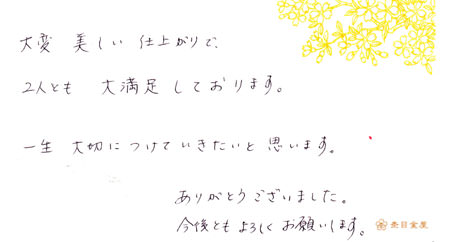 大変 美しい 仕上がりで、
2人とも 大満足 しております。
一生 大切に つけて いきたいと 思います。
ありがとうございました。
今後とも よろしく お願いします。
杢目金屋